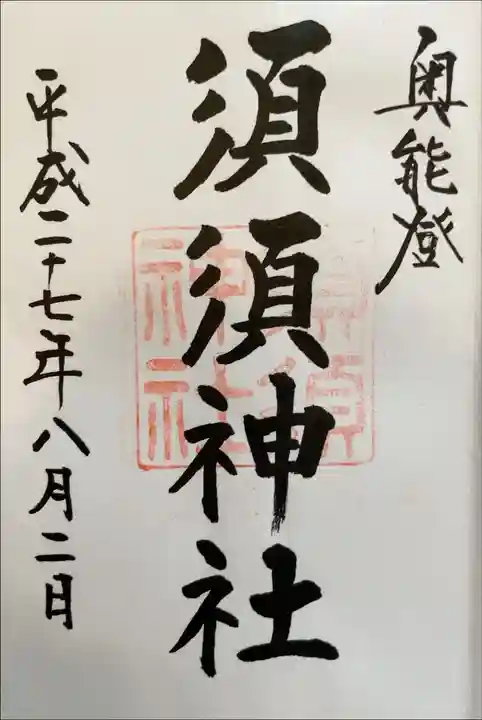 奥能登
須須神社
須須
神社
平成二十七年八月二日